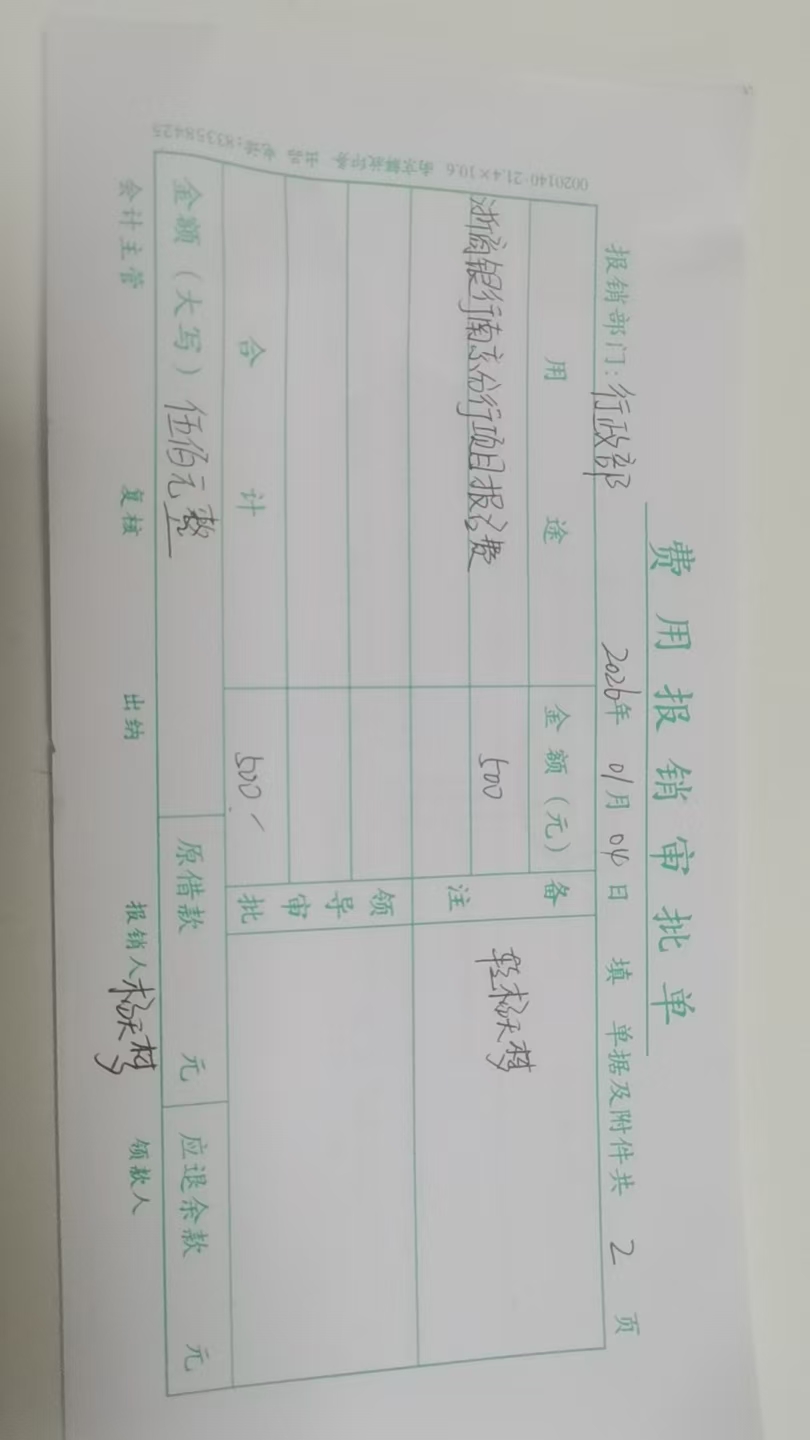 费用报销审批单
报销部门：行政部 2026年01月04日填 单据及附件共 2 页
用途 金额（元） 备注
浙商银行南京分行项目报名费 500
合计 500
领导审批
金额（大写）伍佰元整 原借款 元 应退余款 元
会计主管 复核 出纳 报销人 杨天梦 领款人
0020140-21.4×10.6 南京解放印务 出品 电话:83358425